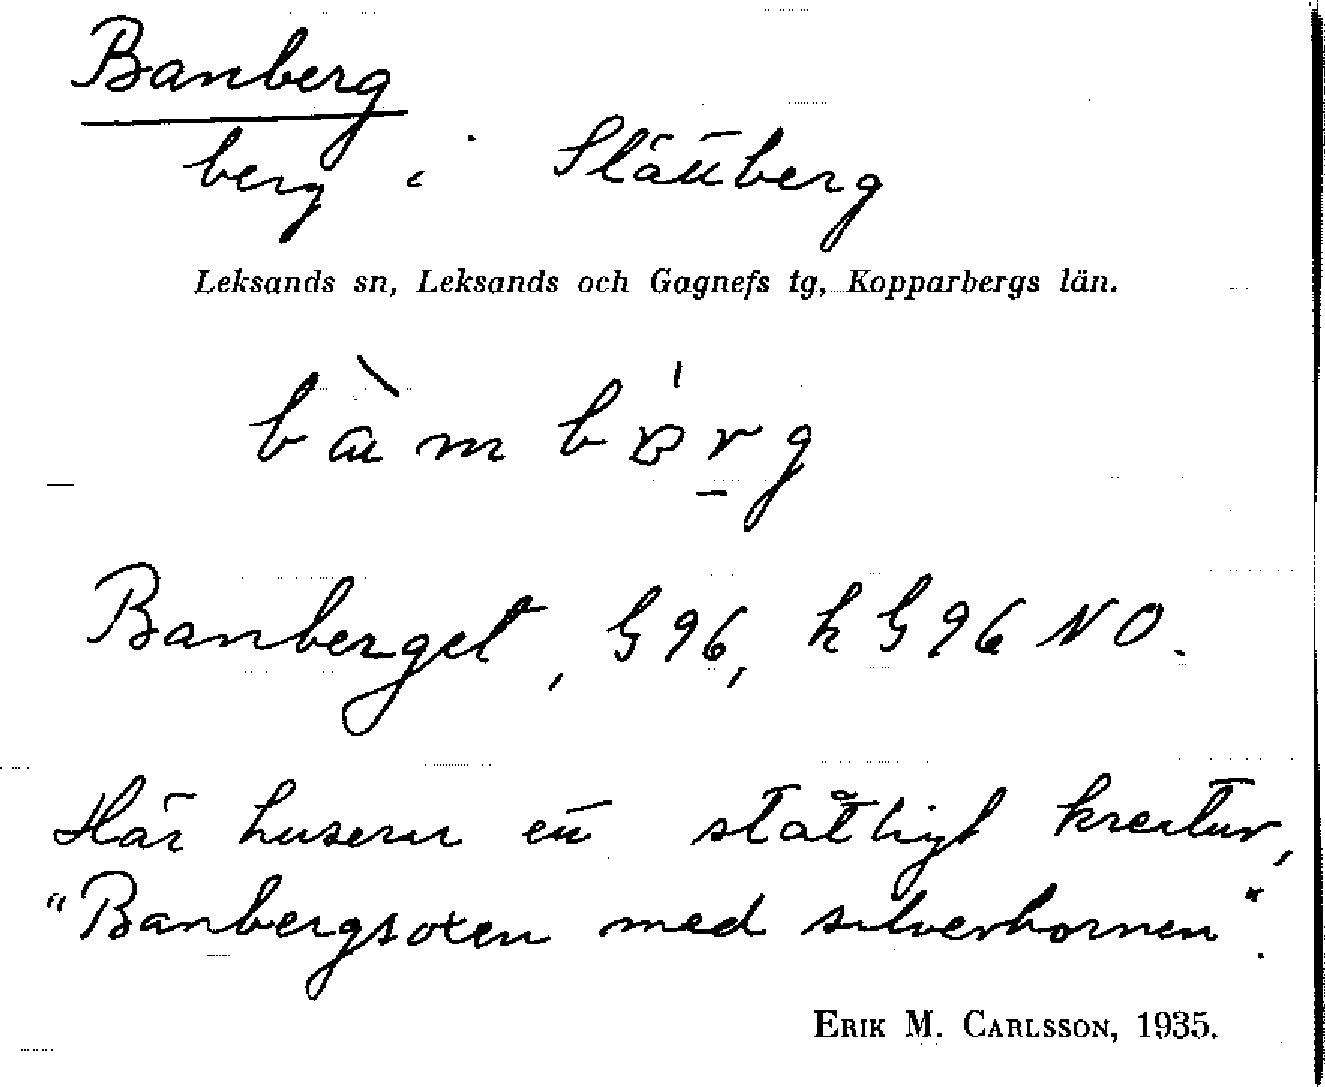 Banberg
berg i Slättberg
Leksands sn, Leksands och Gagnefs tg, Kopparbergs län.
Banberget, G 96, k G 96 NO.
Här huserar ett ståtligt kreatur,
"Banbergsoxen med silverhornen".
ERIK M. CARLSSON, 1935.